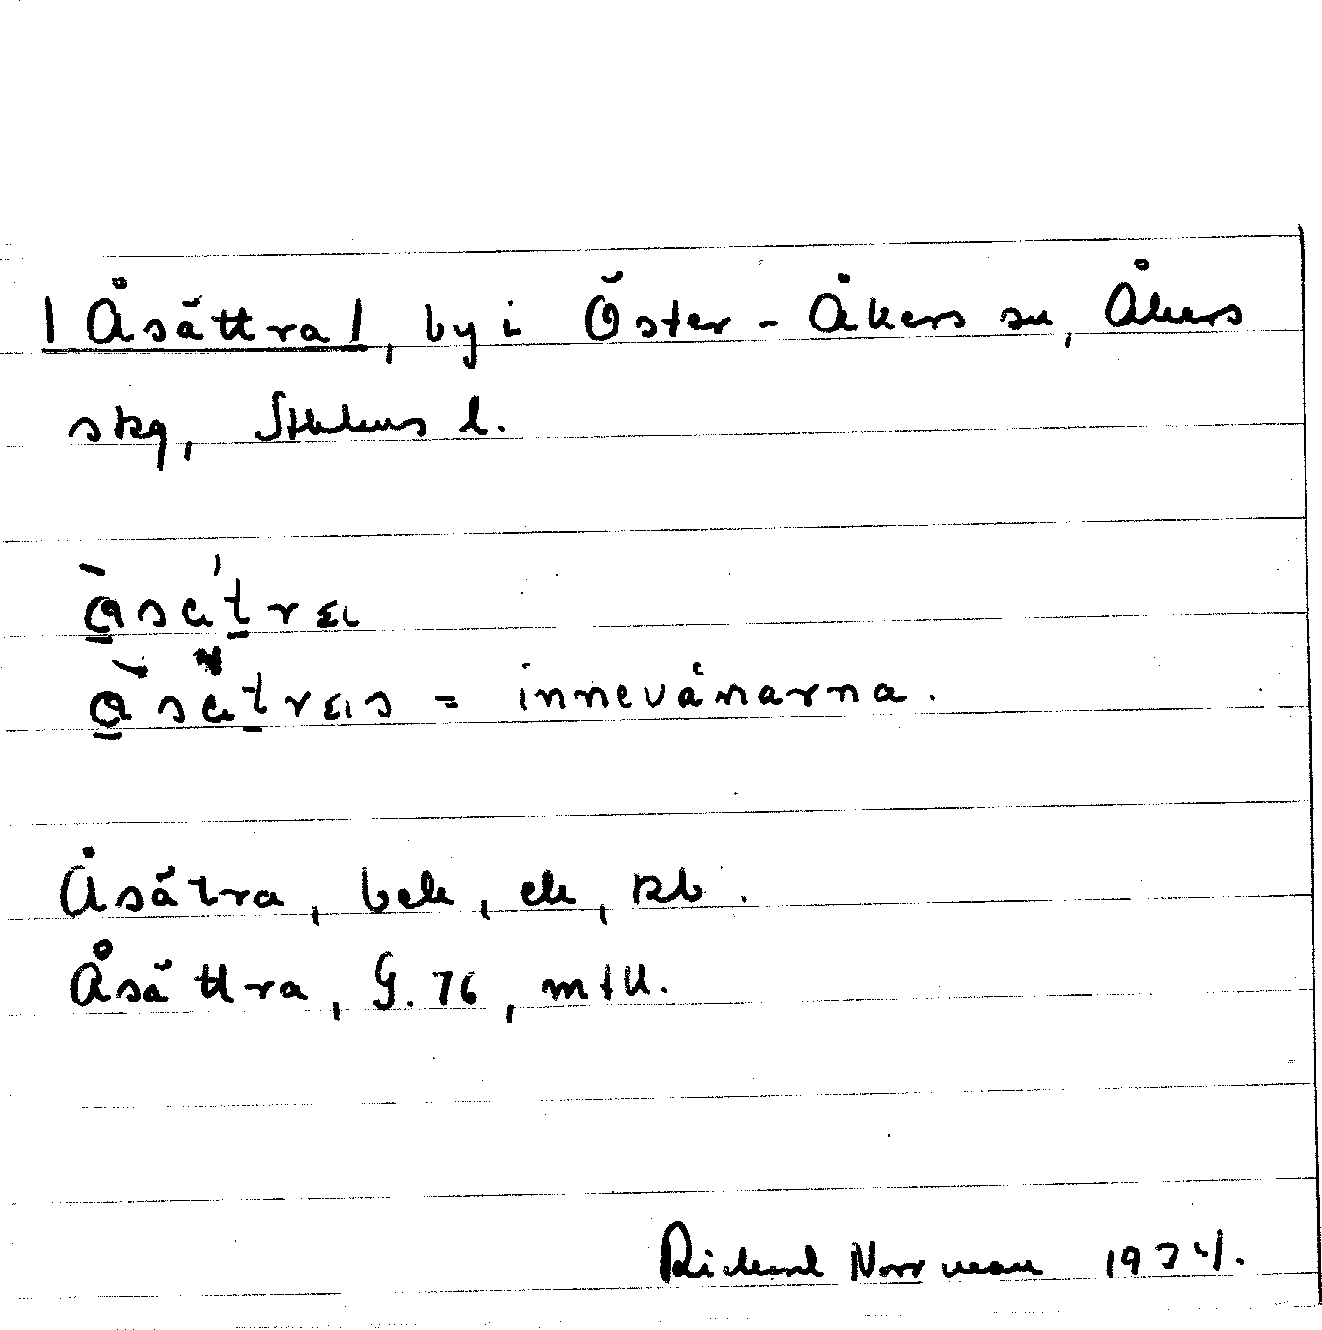 |Åsättra|, by i Öster-Åkers sn, Åkers
skg, Sthlms l.
= innevånarna.
Åsätra, bek, ek, kb.
Åsättra, G. 76, mtll.
Rickard Norrman 1934.